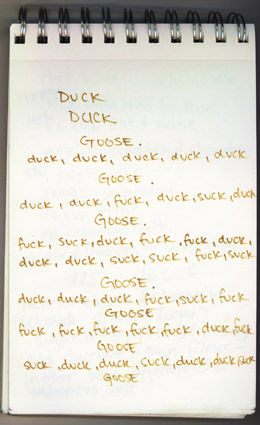 DUCK
DUCK
GOOSE.
duck, duck, duck, duck, duck
GOOSE.
duck, duck, fuck, duck, suck, duck
GOOSE.
fuck, suck, duck, fuck, fuck, duck,
duck, duck, suck, suck, fuck, suck
GOOSE.
duck, duck, duck, fuck, suck, fuck
GOOSE
fuck, fuck, fuck, fuck, fuck, duck, fuck
GOOSE
suck, duck, duck, suck, duck, duck
GOOSE